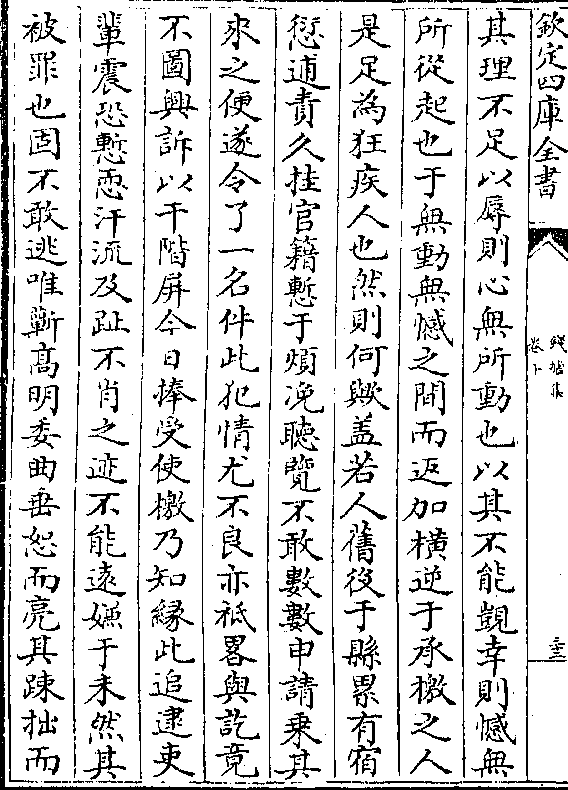 欽定四庫全書
其理不足以辱則心無所動也以其不能覬幸則憾無
所從起也于無動無憾之間而返加橫逆于承檄之人
是足為狂疾人也然則何歟蓋若人舊役于縣累有宿
愆逋責久挂官籍慙于煩凂聽覽不敢數數申請乗其
來之便遂令了一名件此犯情尤不良亦袛畧與訖竟
不圖興訴以干階屏今日捧受使檄乃知緣此追逮吏
輩震恐慙恧汗流及趾不肖之迹不能遠嫌于未然其
被罪也固不敢逃唯蘄高明委曲垂恕而亮其踈拙而